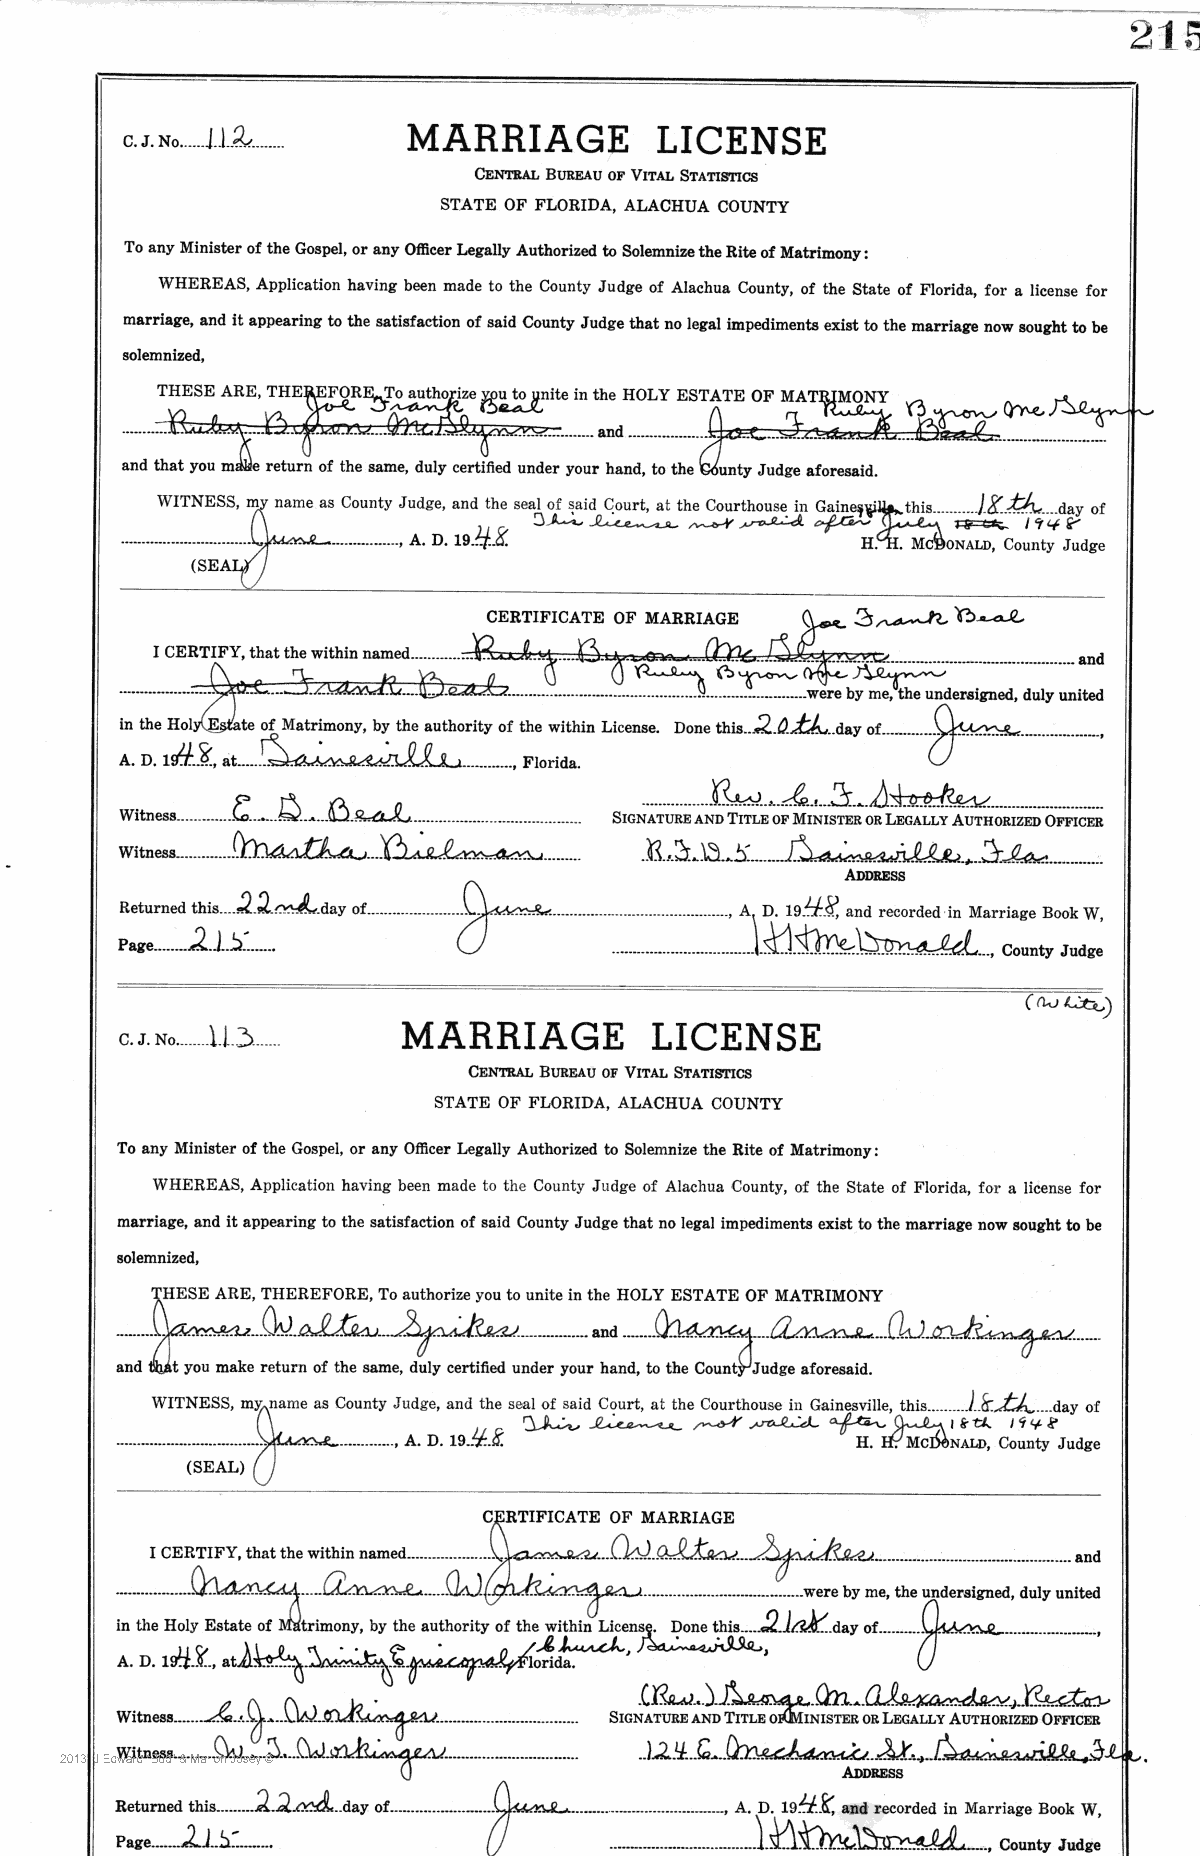 215
C. J. No. 112
MARRIAGE LICENSE
CENTRAL BUREAU OF VITAL STATISTICS
STATE OF FLORIDA, ALACHUA COUNTY
To any Minister of the Gospel, or any Officer Legally Authorized to Solemnize the Rite of Matrimony:
WHEREAS, Application having been made to the County Judge of Alachua County, of the State of Florida, for a license for
marriage, and it appearing to the satisfaction of said County Judge that no legal impediments exist to the marriage now sought to be
solemnized,
THESE ARE, THEREFORE, To authorize you to unite in the HOLY ESTATE OF MATRIMONY
Joe Frank Beal Ruby Byron McGlynn
Ruby Byron McGlynn and Joe Frank Beal
and that you make return of the same, duly certified under your hand, to the County Judge aforesaid.
WITNESS, my name as County Judge, and the seal of said Court, at the Courthouse in Gainesville, this 18th day of
This license not valid after July 18th 1948
June, A. D. 1948. H. H. MCDONALD, County Judge
(SEAL)
CERTIFICATE OF MARRIAGE Joe Frank Beal
I CERTIFY, that the within named Ruby Byron McGlynn and
Ruby Byron McGlynn
Joe Frank Beal were by me, the undersigned, duly united
in the Holy Estate of Matrimony, by the authority of the within License. Done this 20th day of June,
A. D. 1948, at Gainesville, Florida.
Rev. C. F. Hooker
Witness E. G. Beal SIGNATURE AND TITLE OF MINISTER OR LEGALLY AUTHORIZED OFFICER
Witness Martha Bielman R.F.D. 5 Gainesville, Fla.
ADDRESS
Returned this 22nd day of June, A. D. 1948, and recorded in Marriage Book W,
Page 215 HH McDonald, County Judge
(White)
C. J. No. 113
MARRIAGE LICENSE
CENTRAL BUREAU OF VITAL STATISTICS
STATE OF FLORIDA, ALACHUA COUNTY
To any Minister of the Gospel, or any Officer Legally Authorized to Solemnize the Rite of Matrimony:
WHEREAS, Application having been made to the County Judge of Alachua County, of the State of Florida, for a license for
marriage, and it appearing to the satisfaction of said County Judge that no legal impediments exist to the marriage now sought to be
solemnized,
THESE ARE, THEREFORE, To authorize you to unite in the HOLY ESTATE OF MATRIMONY
James Walter Spikes and Nancy Anne Workinger
and that you make return of the same, duly certified under your hand, to the County Judge aforesaid.
WITNESS, my name as County Judge, and the seal of said Court, at the Courthouse in Gainesville, this 18th day of
This license not valid after July 18th 1948
June, A. D. 1948. H. H. MCDONALD, County Judge
(SEAL)
CERTIFICATE OF MARRIAGE
I CERTIFY, that the within named James Walter Spikes and
Nancy Anne Workinger were by me, the undersigned, duly united
in the Holy Estate of Matrimony, by the authority of the within License. Done this 21st day of June,
Church, Gainesville,
A. D. 1948, at Holy Trinity Episcopal Florida.
(Rev.) George M. Alexander, Rector
Witness C. J. Workinger SIGNATURE AND TITLE OF MINISTER OR LEGALLY AUTHORIZED OFFICER
Witness W. J. Workinger 124 E. Mechanic St., Gainesville, Fla.
ADDRESS
Returned this 22nd day of June, A. D. 1948, and recorded in Marriage Book W,
Page 215 HH McDonald, County Judge